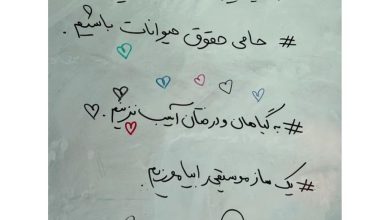 # حامی حقوق حیوانات باشیم.
# به گیاهان و درختان آسیب نزنیم.
# یک ساز موسیقی را بیاموزیم.